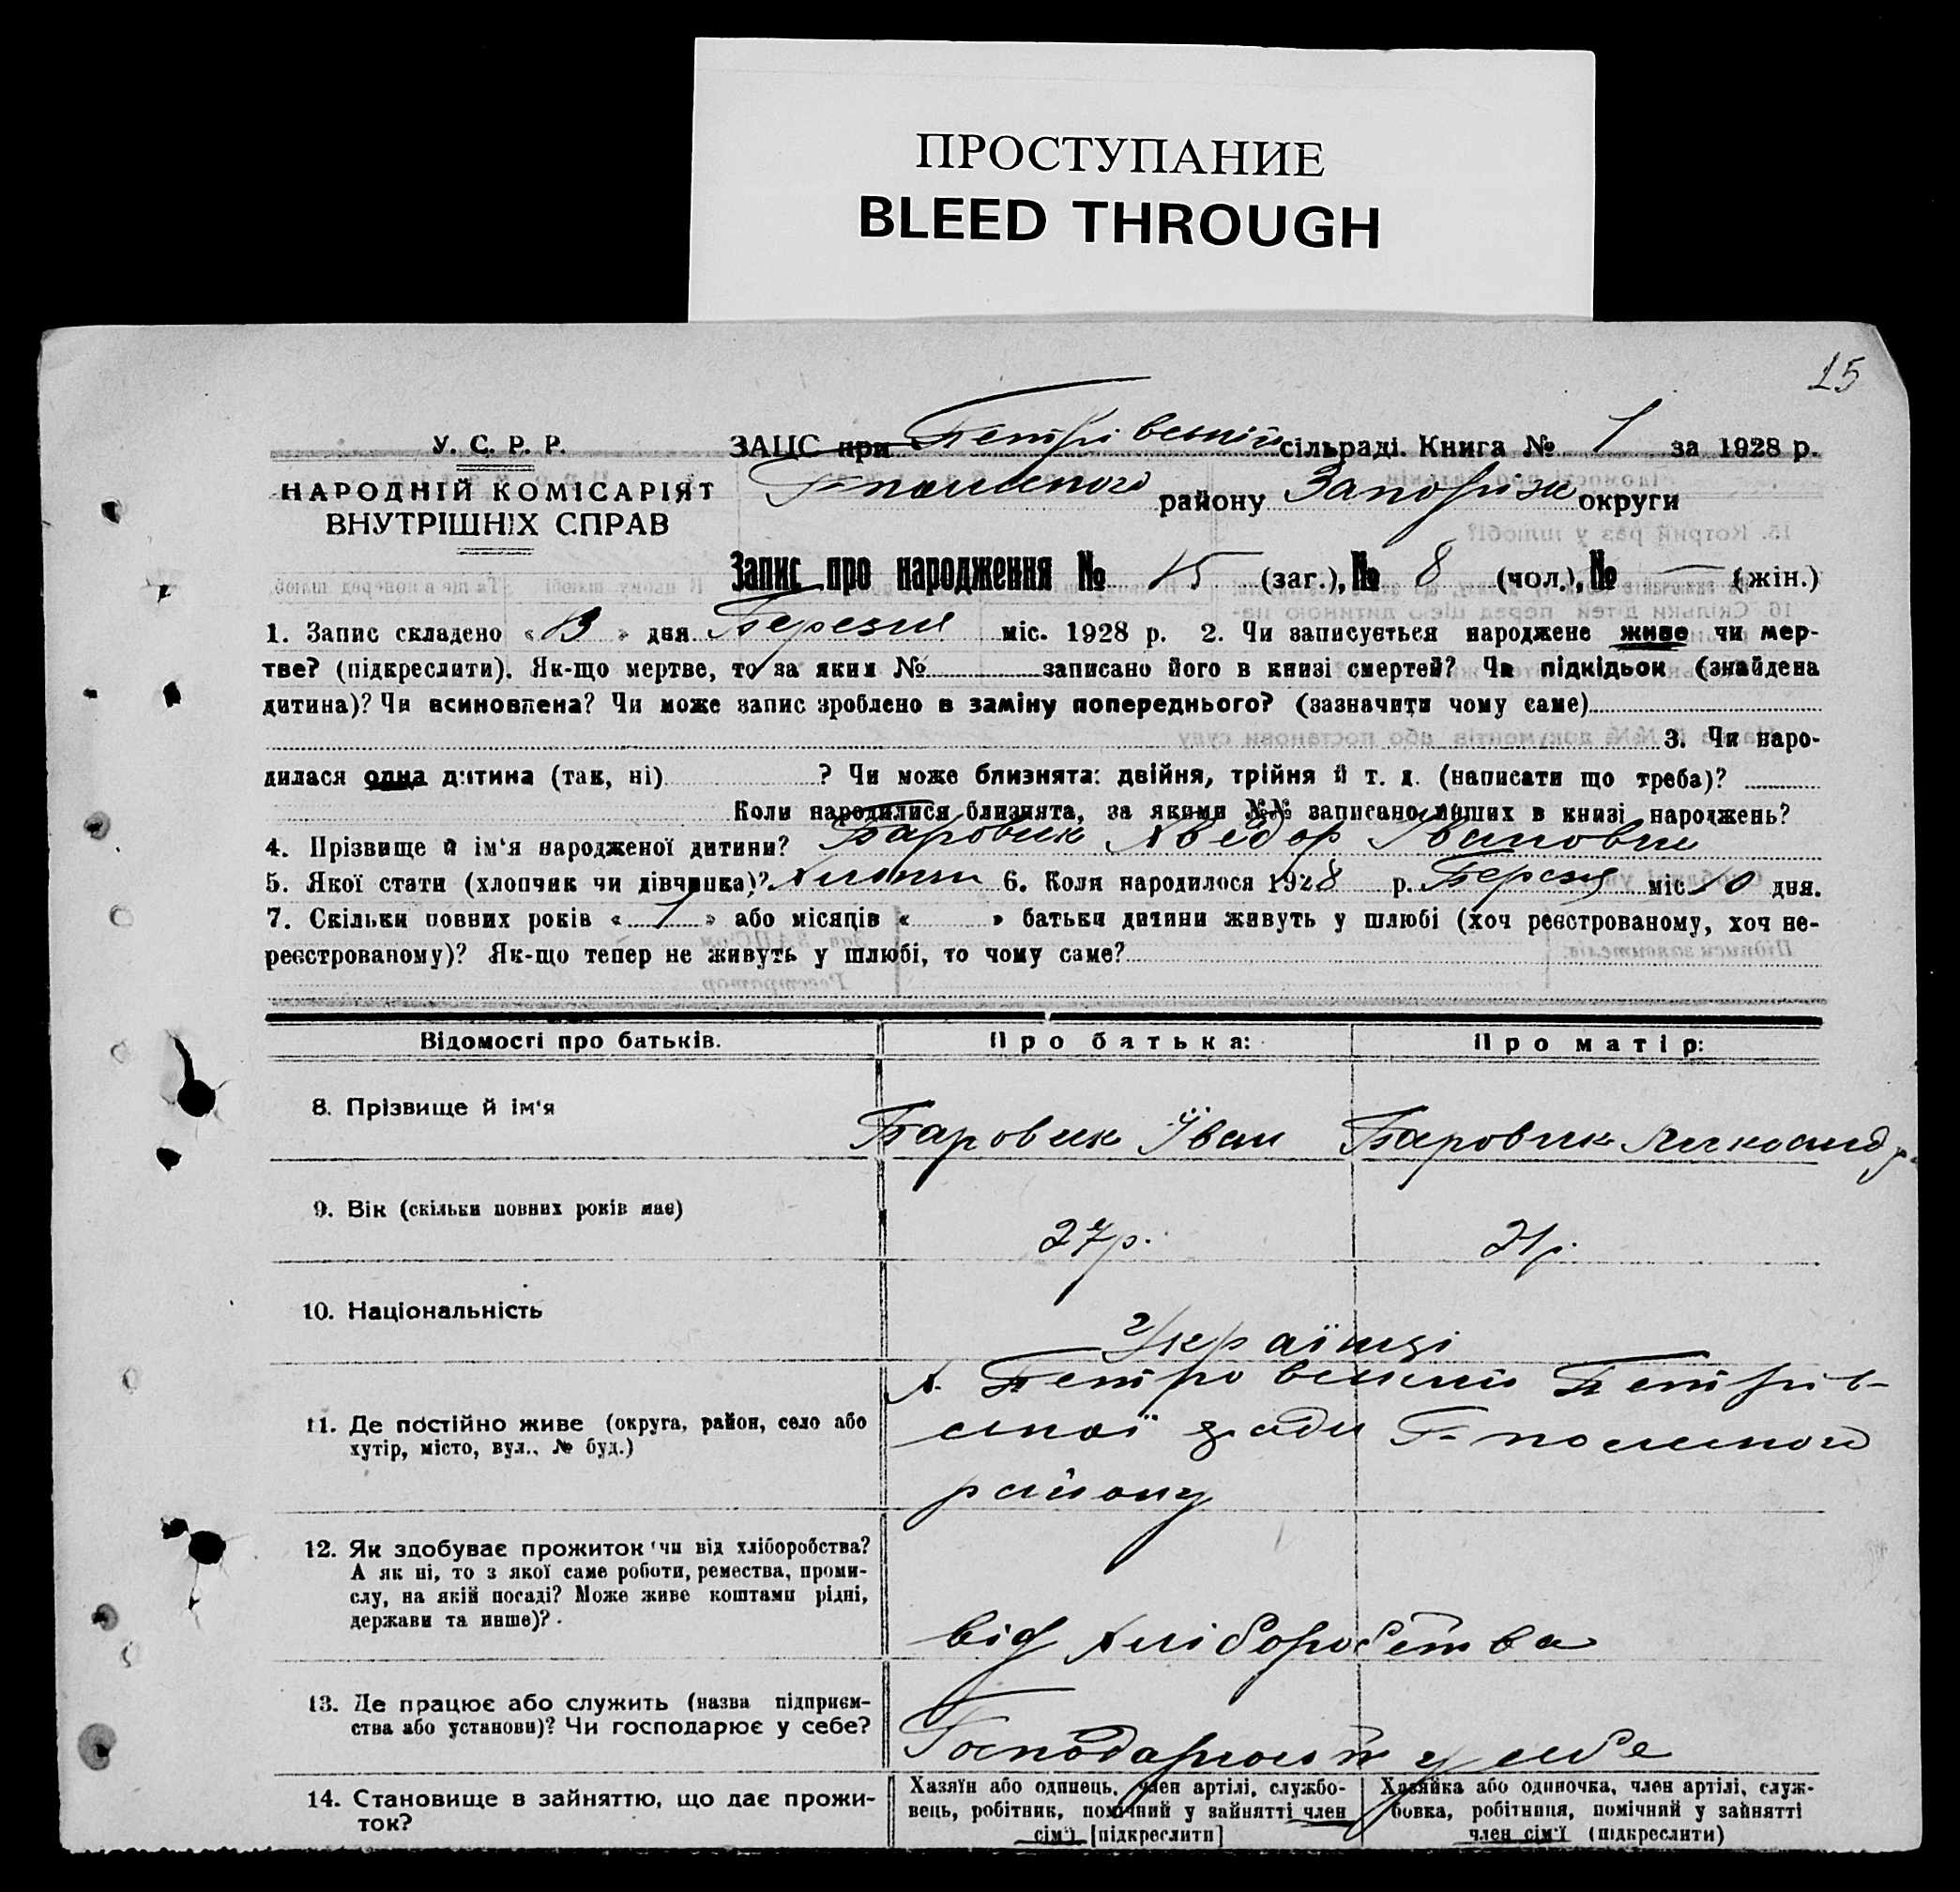 ПРОСТУПАНИЕ
BLEED THROUGH
15
У. С. Р. Р.
НАРОДНІЙ КОМІСАРІЯТ
ВНУТРІШНІХ СПРАВ
ЗАЦС при Петрівській сільраді. Книга № 1 за 1928 р.
району Запоріж округи
Запис про народження № 15 (заг.), № 8 (чол.), № — (жін.)
1. Запис складено « 13 » дня Березня міс. 1928 р. 2. Чи записується народжене живе чи мер-
тве? (підкреслити). Як-що мертве, то за яким № записано його в книзі смертей? Чи підкідьок (знайдена
дитина)? Чи всиновлена? Чи може запис зроблено в заміну попереднього? (зазначити чому саме)
3. Чи наро-
дилася одна дитина (так, ні) ? Чи може близнята: двійня, трійня й т. д. (написати що треба)?
Коли народилися близнята, за якими №№ записано инших в книзі народжень?
4. Прізвище й ім‘я народженої дитини? Баровик Хведор Іванович
5. Якої стати (хлопчик чи дівчинка)? Хлопчик 6. Коли народилося 1928 р. Березня міс. 10 дня.
7. Скільки повних років « 1 » або місяців « » батьки дитини живуть у шлюбі (хоч реєстрованому, хоч не-
реєстрованому)? Як-що тепер не живуть у шлюбі, то чому саме?
Відомості про батьків. Про батька: Про матір:
8. Прізвище й ім‘я Баровик Іван Баровик
9. Вік (скільки повних років має) 27 р. 21 р.
10. Національність Українці
11. Де постійно живе (округа, район, село або
хутір, місто, вул., № буд.)
х. Петровський Петрів-
ської ради
району
12. Як здобуває прожиток чи від хліборобства?
А як ні, то з якої саме роботи, ремества, проми-
слу, на якій посаді? Може живе коштами рідні,
держави та инше)?
від хліборобства
13. Де працює або служить (назва підприєм-
ства або установи)? Чи господарює у себе?
Господарюють у себе
14. Становище в зайняттю, що дає прожи-
ток?
Хазяїн або одинець, член артілі, службо-
вець, робітник, помічний у зайнятті член
сім‘ї [підкреслити]
Хазяйка або одиночка, член артілі, служ-
бовка, робітниця, помічний у зайнятті
член сім‘ї (підкреслити)